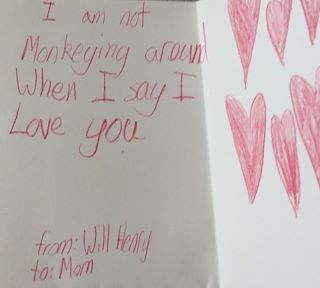 I am not
Monkeying around
When I say I
Love you
from: Will Henry
to: Mom